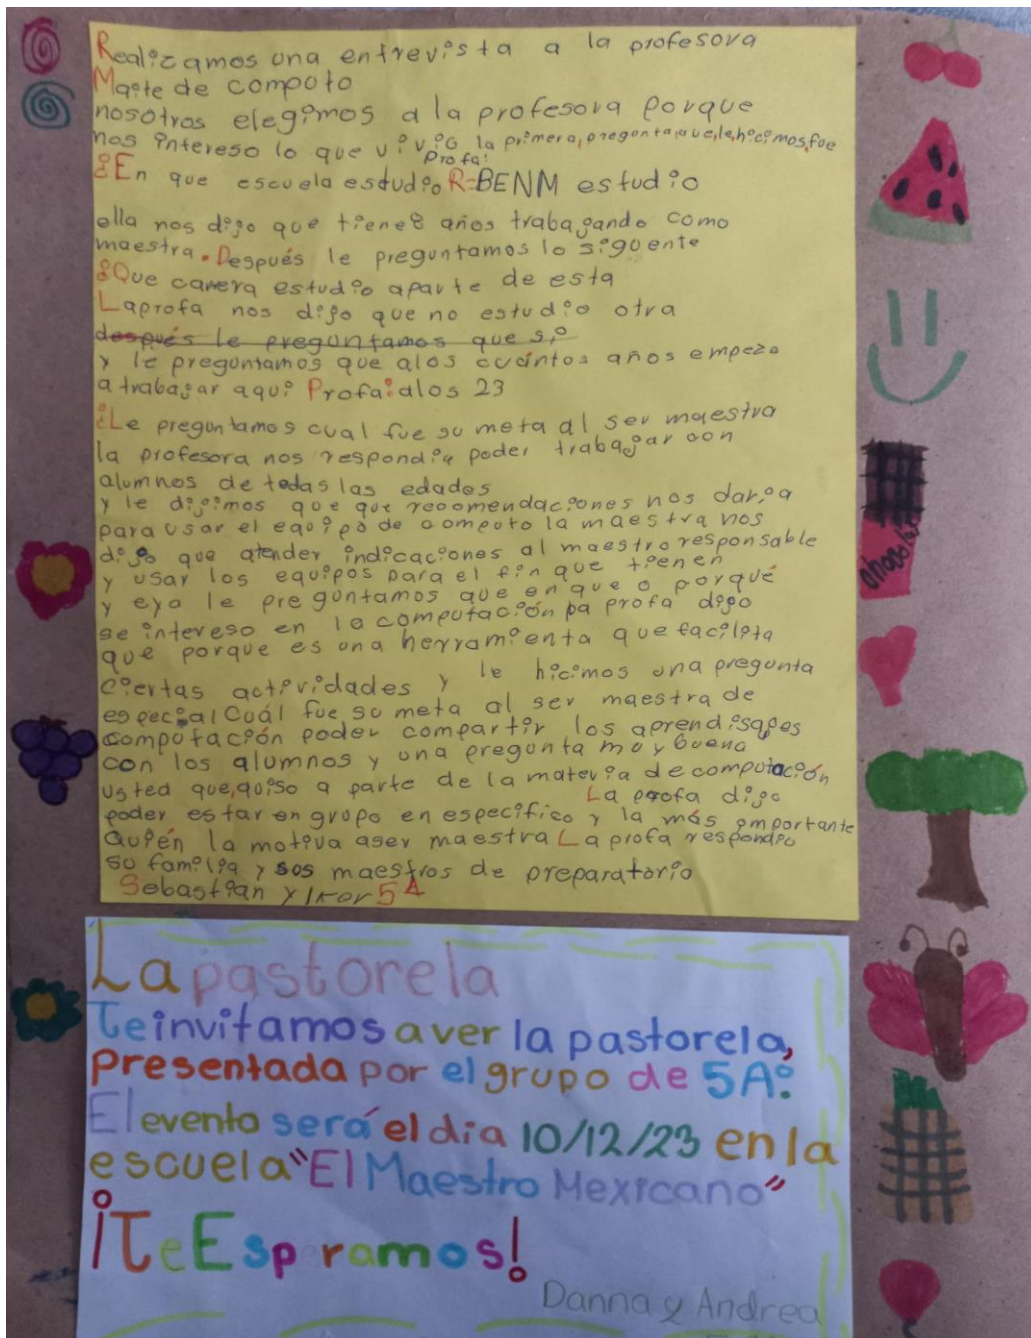 Realizamos una entrevista a la profesora
Maite de computo
nosotros elegimos a la profesora Porque
nos intereso lo que vivio la primera, pregunta, que, le, hicimos, fue
¿En que escuela estudio Profa: R=BENM estudio
ella nos digo que tiene 8 años trabagando como
maestra. Después le preguntamos lo siguente
¿Que carrera estudio aparte de esta
La profa nos digo que no estudio otra
después le preguntamos que si
y le preguntamos que alos cuántos años empezo
a trabajar aqui Profa: alos 23
¿Le preguntamos cual fue su meta al ser maestra
la profesora nos respondia poder trabagar con
alumnos de todas las edades
y le digimos que que recomendaciones nos daria
para usar el equipo de computo la maestra nos
digo que atender indicaciones al maestro responsable
y usar los equipos para el fin que tienen
y eya le preguntamos que en que o porqué
se intereso en la computación pa profa digo
que porque es una herramienta que facilita
ciertas actividades y le hicimos una pregunta
especial Cuál fue su meta al ser maestra de
computación poder compartir los aprendisages
con los alumnos y una pregunta muy buena
usted que, quiso a parte de la materia de computación
La profa digo
poder estar en grupo en especifico y la más importante
Quién la motiva aser maestra La profa respondio
su familia y sus maestros de preparatorio
Sebastian y Iker 5A
La pastorela
Te invitamos a ver la pastorela,
Presentada por el grupo de 5A:
El evento será el dia 10/12/23 en la
escuela "El Maestro Mexicano"
¡Te Esperamos!
Danna y Andrea